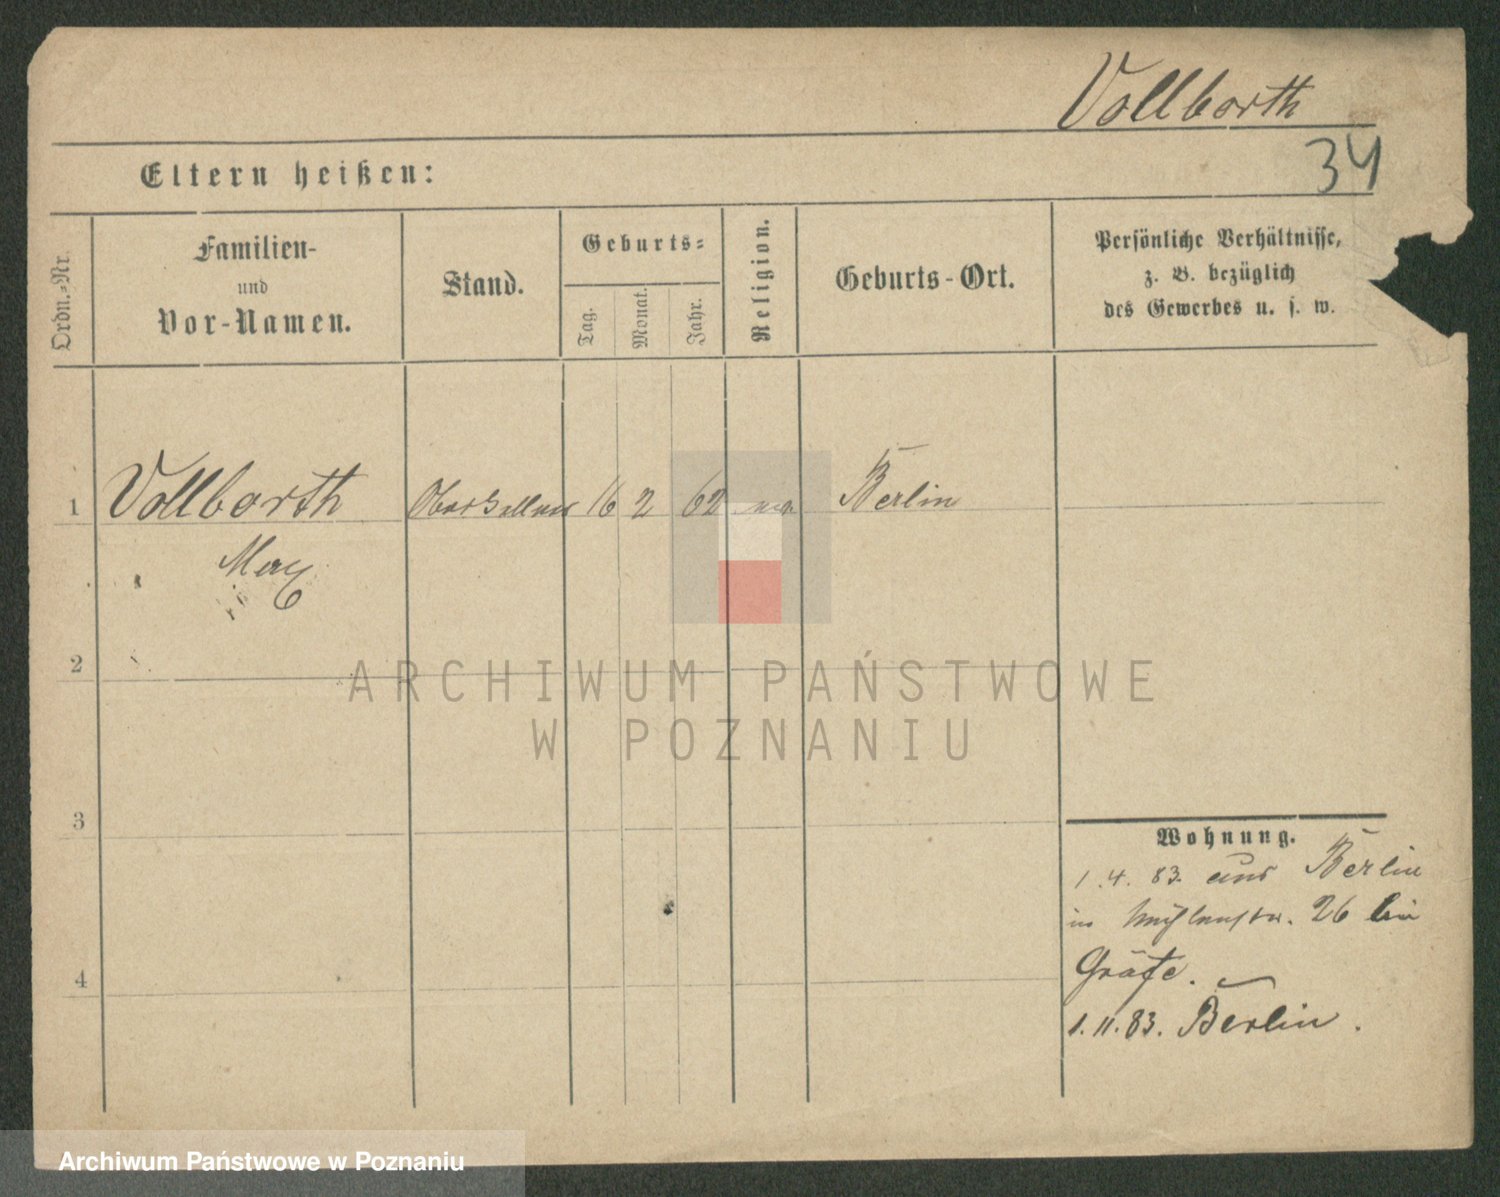 Vollborth
34
Eltern heißen:
Ordn.-Nr.
Familien-
und
Vor-Namen.
Stand.
Geburts-
Tag.
Monat.
Jahr.
Religion.
Geburts-Ort.
Persönliche Verhältnisse,
z. B. bezüglich
des Gewerbes u. s. w.
1 Vollborth Oberkellner 16 2 62 Berlin
Max
2
3
4
Wohnung.
1.4.83. aus Berlin
in Mühlenstr. 26 bei
Gräfe.
1.11.83. Berlin.
ARCHIWUM PAŃSTWOWE
W POZNANIU
Archiwum Państwowe w Poznaniu